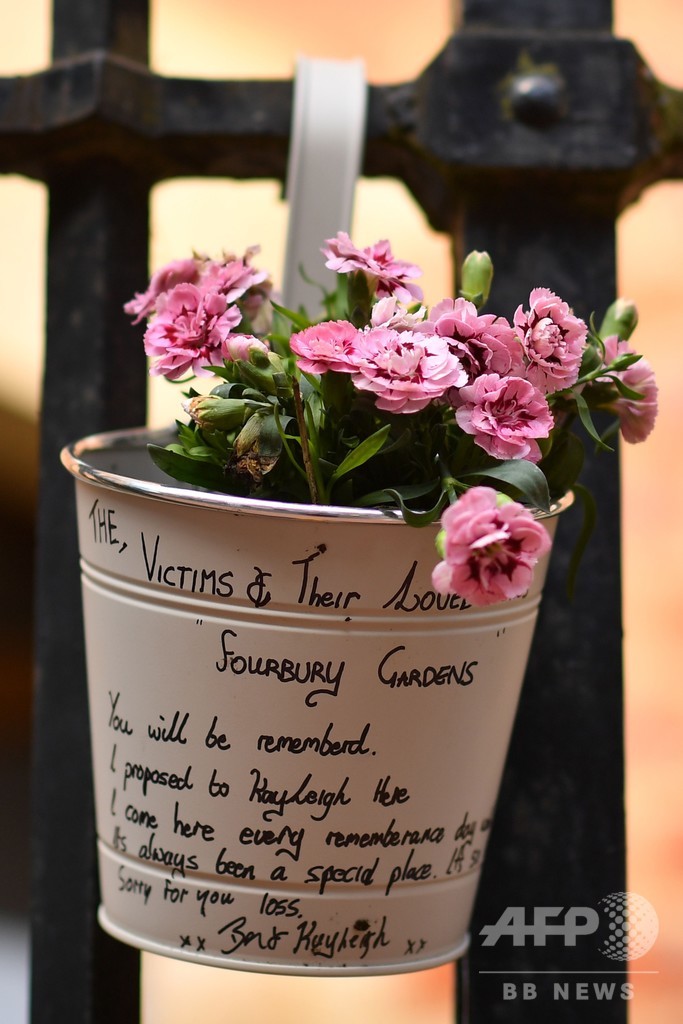 THE, VICTIMS & Their LOVED
"FOURBURY GARDENS"
You will be rememberd.
I proposed to Kayleigh Here
I come here every rememberance day
it's always been a special place. It's
Sorry For you loss.
xx Kayleigh xx
AFP
BB NEWS